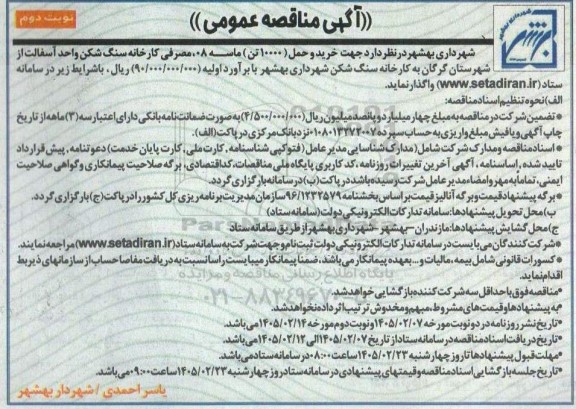 نوبت دوم
((آگهی مناقصه عمومی))
شهرداری بهشهر
شهرداری بهشهر در نظر دارد جهت خرید و حمل (۱۰۰۰۰ تن) ماسه ۰۸، مصرفی کارخانه سنگ شکن واحد آسفالت از
شهرستان گرگان به کارخانه سنگ شکن شهرداری بهشهر با برآورد اولیه (۹۰/۰۰۰/۰۰۰/۰۰۰) ریال، با شرایط زیر در سامانه
ستاد (www.setadiran.ir) واگذار نماید.
الف) نحوه تنظیم اسناد مناقصه:
* تضمین شرکت در مناقصه به مبلغ چهار میلیارد و پانصد میلیون ریال (۴/۵۰۰/۰۰۰/۰۰۰) به صورت ضمانت نامه بانکی دارای اعتبار سه (۳) ماهه از تاریخ
چاپ آگهی و یا فیش مبلغ واریزی به حساب سپرده ۰۱۰۸۰۱۳۲۷۲۰۰۷ نزد بانک مرکزی در پاکت (الف).
* اسناد مناقصه و مدارک شرکت شامل (مدارک شناسایی مدیر عامل (فتوکپی شناسنامه، کارت ملی، کارت پایان خدمت) دعوتنامه، پیش قرارداد
تایید شده، اساسنامه، آگهی آخرین تغییرات روزنامه، کد کاربری پایگاه ملی مناقصات، کد اقتصادی، برگه صلاحیت پیمانکاری و گواهی صلاحیت
ایمنی، تماما به مهر و امضاء مدیر عامل شرکت رسیده باشد در پاکت (ب) در سامانه بارگزاری گردد.
* برگه پیشنهاد قیمت و برگه آنالیز قیمت براساس بخشنامه ۹۶/۱۲۳۲۵۷۹ سازمان مدیریت برنامه ریزی کل کشور را در پاکت (ج) بارگزاری گردد.
ب) محل تحویل پیشنهادها: سامانه تدارکات الکترونیکی دولت (سامانه ستاد)
ج) محل گشایش پیشنهادها: مازندران – بهشهر – شهرداری بهشهر از طریق سامانه ستاد
* شرکت کنندگان می بایست در سامانه تدارکات الکترونیکی دولت ثبت نام و جهت شرکت به سامانه ستاد (www.setadiran.ir) مراجعه نمایند.
* کسورات قانونی شامل بیمه، مالیات و ... بعهده پیمانکار می باشد، ضمناً پیمانکار میبایست راسا نسبت به دریافت مفاصا حساب از سازمانهای ذیربط
اقدام نماید.
* مناقصه فوق با حداقل سه شرکت کننده بازگشایی خواهد شد.
* به پیشنهادها و قیمت های مشروط، مبهم و مخدوش ترتیب اثر داده نخواهد شد.
* تاریخ نشر روزنامه در دو نوبت مورخه ۱۴۰۵/۰۲/۰۷ و نوبت دوم مورخه ۱۴۰۵/۰۲/۱۴ می باشد.
* تاریخ دریافت اسناد مناقصه در سامانه ستاد از تاریخ ۱۴۰۵/۰۲/۰۷ الی ۱۴۰۵/۰۲/۱۲ می باشد.
* مهلت قبول پیشنهادها تا روز چهارشنبه ۱۴۰۵/۰۲/۲۳ ساعت ۰۸:۰۰ در سامانه ستاد می باشد.
* تاریخ جلسه بازگشایی اسناد مناقصه و قیمتهای پیشنهادی در سامانه ستاد روز چهارشنبه ۱۴۰۵/۰۲/۲۳ ساعت ۰۹:۰۰ می باشد.
یاسر احمدی / شهردار بهشهر